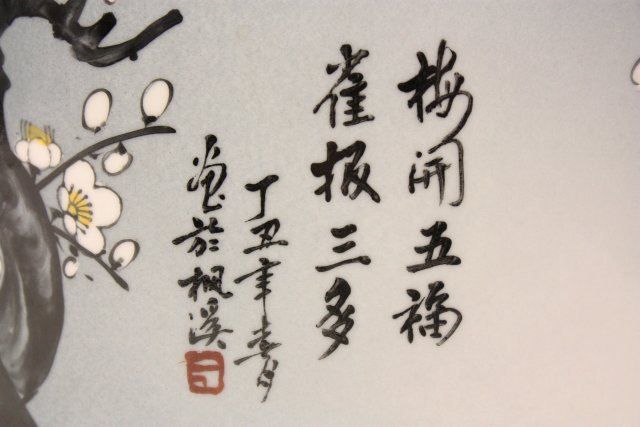 梅開五福
雀报三多
丁丑年春月
画於楓溪